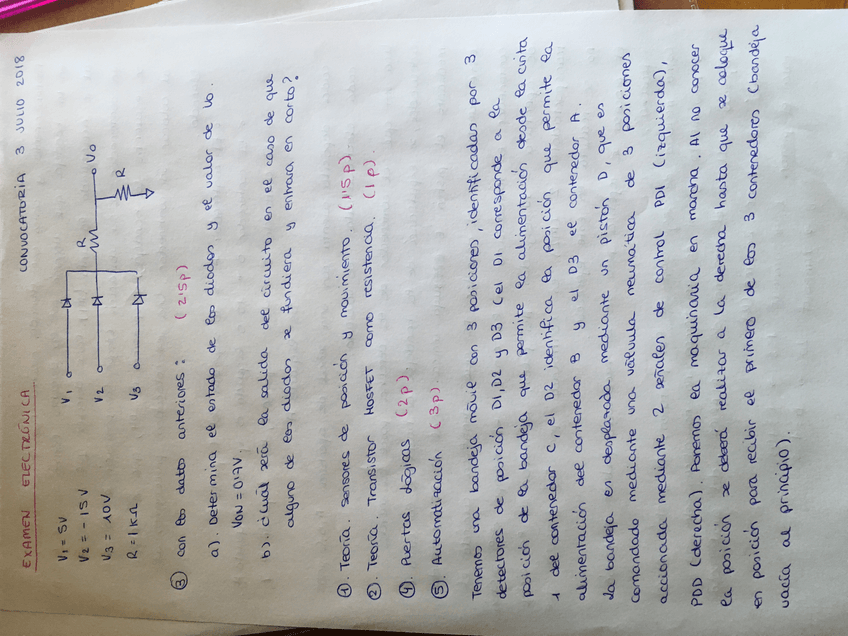 EXAMEN ELECTRÓNICA CONVOCATORIA 3 JULIO 2018
V1 = 5V
V2 = -15V
V3 = 10V
R = 1KΩ
V1
V2
V3
R
Vo
R
③ Con los datos anteriores: (2'5p)
a). Determina el estado de los diodos y el valor de Vo.
VON = 0'7V.
b). ¿Cuál sería la salida del circuito en el caso de que
alguno de los diodos se fundiera y entrara en corto?
①. Teoría. Sensores de posición y movimiento. (1'5p).
②. Teoría. Transistor MOSFET como resistencia. (1p).
④. Puertas Lógicas (2p).
⑤. Automatización (3p).
Tenemos una bandeja móvil con 3 posiciones, identificadas por 3
detectores de posición D1, D2 y D3 (el D1 corresponde a la
posición de la bandeja que permite la alimentación desde la cinta
1 del contenedor C, el D2 identifica la posición que permite la
alimentación del contenedor B y el D3 el contenedor A.
La bandeja es desplazada mediante un pistón D, que es
comandado mediante una válvula neumática de 3 posiciones
accionada mediante 2 señales de control PDI (izquierda),
PDD (derecha). Ponemos la maquinaria en marcha. Al no conocer
la posición se deberá realizar a la derecha hasta que se coloque
en posición para recibir el primero de los 3 contenedores (bandeja
vacía al principio).